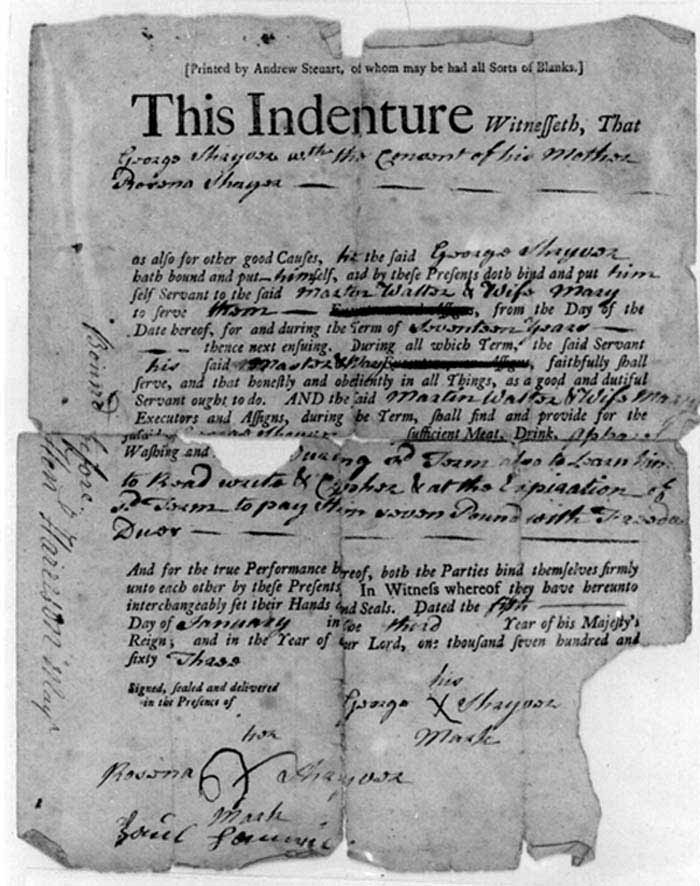 [Printed by Andrew Steuart, of whom may be had all Sorts of Blanks.]
This Indenture Witnesseth, That
George Shayver with the Consent of his Mother
Rosena Shayer
as also for other good Causes, he the said George Shayver
hath bound and put himself, and by these Presents doth bind and put him
self Servant to the said Martin Walter & Wife Mary
to serve them , from the Day of the
Date hereof, for and during the Term of Seventeen Years
thence next ensuing. During all which Term, the said Servant
his said Master &, faithfully shall
serve, and that honestly and obediently in all Things, as a good and dutiful
Servant ought to do. AND the said Martin Walter & Wife Mary
Executors and Assigns, during he Term, shall find and provide for the
sufficient Meat, Drink,
Washing and During sd Term also to Learn him
to Read write & Cypher & at the Expiration of
sd Term to pay him seven Pound with Freedom
Dues
And for the true Performance hereof, both the Parties bind themselves firmly
unto each other by these Presents In Witness whereof they have hereunto
interchangeably set their Hands and Seals. Dated the fifth
Day of January in the third Year of his Majesty's
Reign; and in the Year of our Lord, one thousand seven hundred and
sixty Three
Signed, sealed and delivered
in the Presence of
his
George X Shayver
Mark
her
Rosena X Shayver
Mark
Bound before